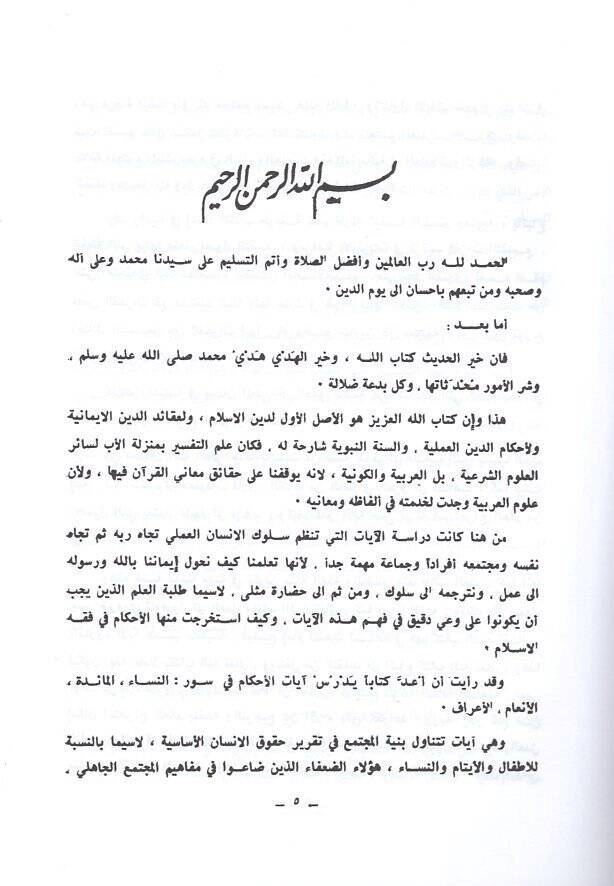 بسم الله الرحمن الرحيم
الحمد لله رب العالمين وأفضل الصلاة وأتم التسليم على سيدنا محمد وعلى آله
وصحبه ومن تبعهم باحسان الى يوم الدين ٠
أما بعــد :
فان خير الحديث كتاب اللـه ، وخير الهَدْي هَدْيُ محمد صلى الله عليه وسلم ،
وشر الأمور مُحْدَثاتها ، وكل بدعة ضلالة ٠
هذا وإن كتاب الله العزيز هو الأصل الأول لدين الاسلام ، ولعقائد الدين الايمانية
ولأحكام الدين العملية ، والسنة النبوية شارحة له . فكان علم التفسير بمنزلة الأب لسائر
العلوم الشرعية ، بل العربية والكونية ، لانه يوقفنا على حقائق معاني القرآن فيها ، ولأن
علوم العربية وجدت لخدمته في ألفاظه ومعانيه ٠
من هنا كانت دراسة الآيات التي تنظم سلوك الانسان العملي تجاه ربه ثم تجاه
نفسه ومجتمعه أفراداً وجماعة مهمة جداً ، لأنها تعلمنا كيف نحول إيماننا بالله ورسوله
الى عمل ، ونترجمه الى سلوك ، ومن ثم الى حضارة مثلى ، لاسيما طلبة العلم الذين يجب
أن يكونوا على وعي دقيق في فهم هذه الآيات ، وكيف استخرجت منها الأحكام في فقه
الاسلام ٠
وقد رأيت أن أعدَّ كتاباً يَدْرُسُ آيات الأحكام في سور : النساء ، المائدة ،
الأنعام ، الأعراف ٠
وهي آيات تتناول بنية المجتمع في تقرير حقوق الانسان الأساسية ، لاسيما بالنسبة
للاطفال والأيتام والنساء ، هؤلاء الضعفاء الذين ضاعوا في مفاهيم المجتمع الجاهلي .
— ٥ —